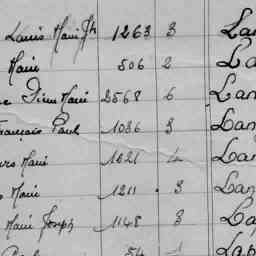 Louis Marie Jh 1263 3 Lan
Marie 506 2 La
Pierre Marie 2568 6 Lan
François Paul 1036 3 Lan
Marie 1621 4 Lan
Marie 1211 3 Lan
Marie Joseph 1148 3 La
54 1 Lap